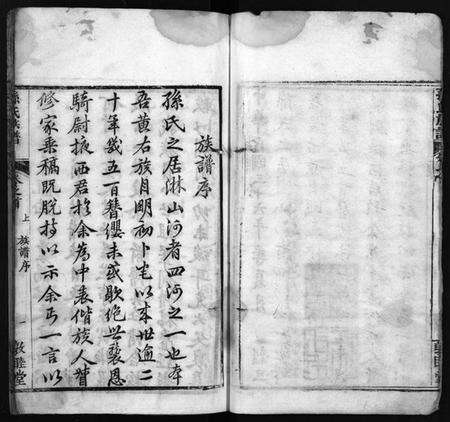 族譜序
孫氏之居淋山河者四河之一也本
吾黄右族自明初卜宅以來世逾二
十年幾五百簪纓未或歇絶世襲恩
騎尉掖西君於余為中表偕族人曾
修家乗稿既脱持以示余丐一言以
孫氏族譜
卷首
上
族譜序
一
敦睦堂